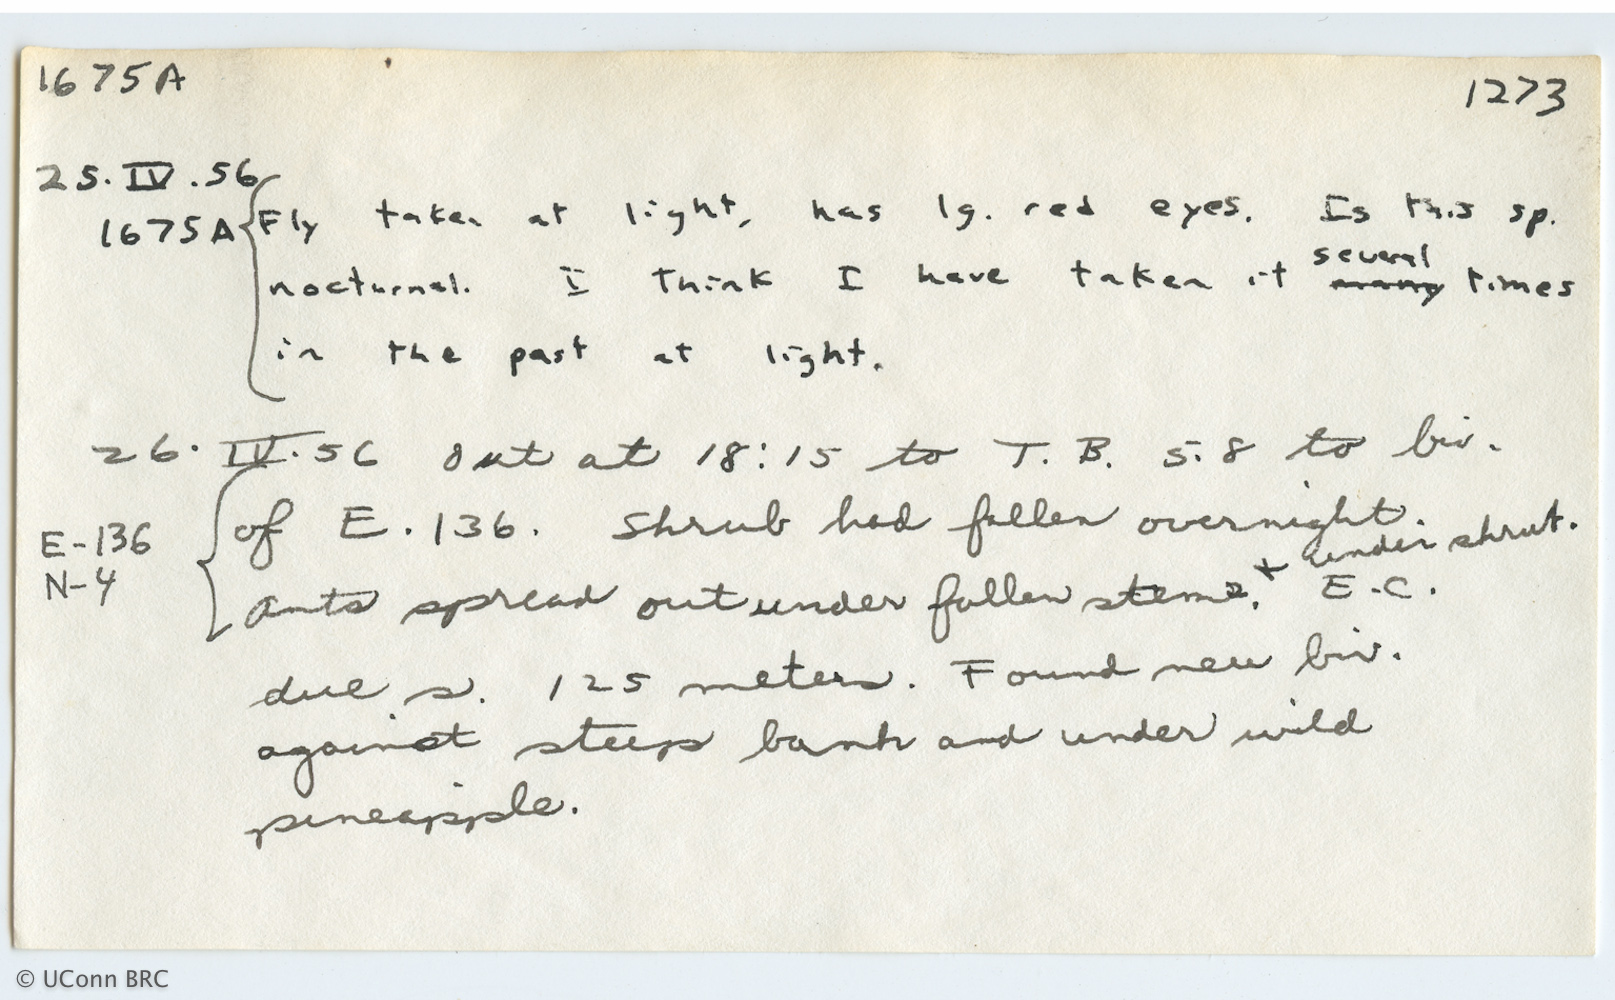 1675A
1273
25.IV.56
1675A Fly taken at light, has lg. red eyes. Is this sp.
nocturnal. I think I have taken it many several times
in the past at light.
26.IV.56 Out at 18:15 to T.B. 5.8 to biv.
E-136
N-4
of E.136. Shrub had fallen overnight.
Ants spread out under fallen stems. + under shrub. E.C.
due s. 125 meters. Found new biv.
against steep bank and under wild
pineapple.
© UConn BRC